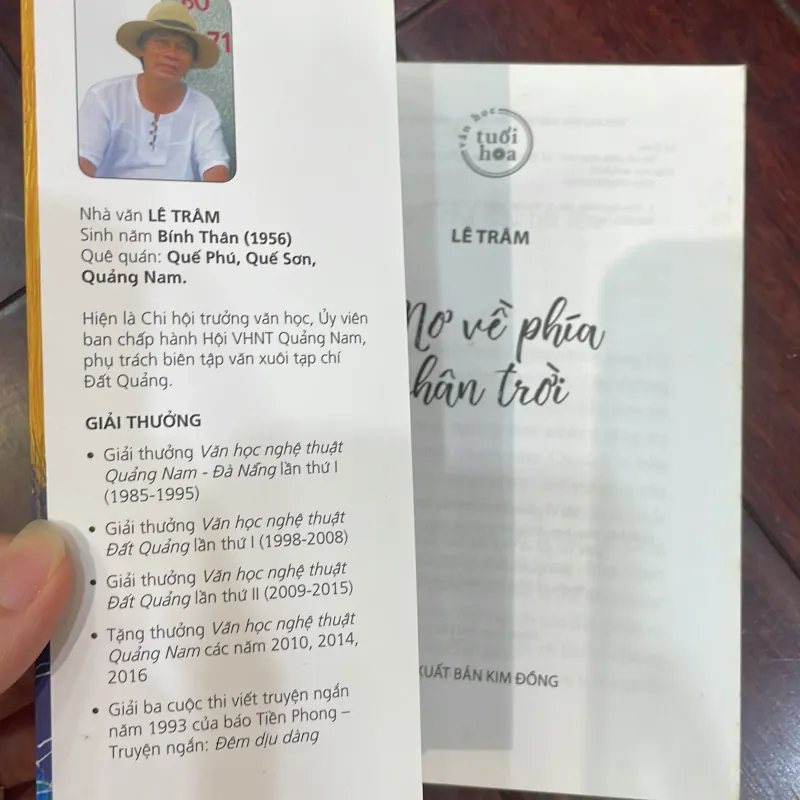 60
71
Nhà văn LÊ TRÂM
Sinh năm Bính Thân (1956)
Quê quán: Quế Phú, Quế Sơn,
Quảng Nam.
Hiện là Chi hội trưởng văn học, Ủy viên
ban chấp hành Hội VHNT Quảng Nam,
phụ trách biên tập văn xuôi tạp chí
Đất Quảng.
GIẢI THƯỞNG
• Giải thưởng Văn học nghệ thuật
Quảng Nam - Đà Nẵng lần thứ I
(1985-1995)
• Giải thưởng Văn học nghệ thuật
Đất Quảng lần thứ I (1998-2008)
• Giải thưởng Văn học nghệ thuật
Đất Quảng lần thứ II (2009-2015)
• Tặng thưởng Văn học nghệ thuật
Quảng Nam các năm 2010, 2014,
2016
• Giải ba cuộc thi viết truyện ngắn
năm 1993 của báo Tiền Phong –
Truyện ngắn: Đêm dịu dàng
văn học
tuổi
hoa
LÊ TRÂM
Mơ về phía
hân trời
XUẤT BẢN KIM ĐỒNG